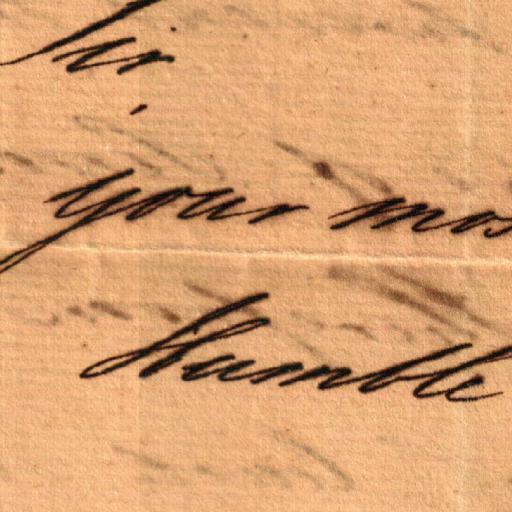 Sir
your mos
Humble